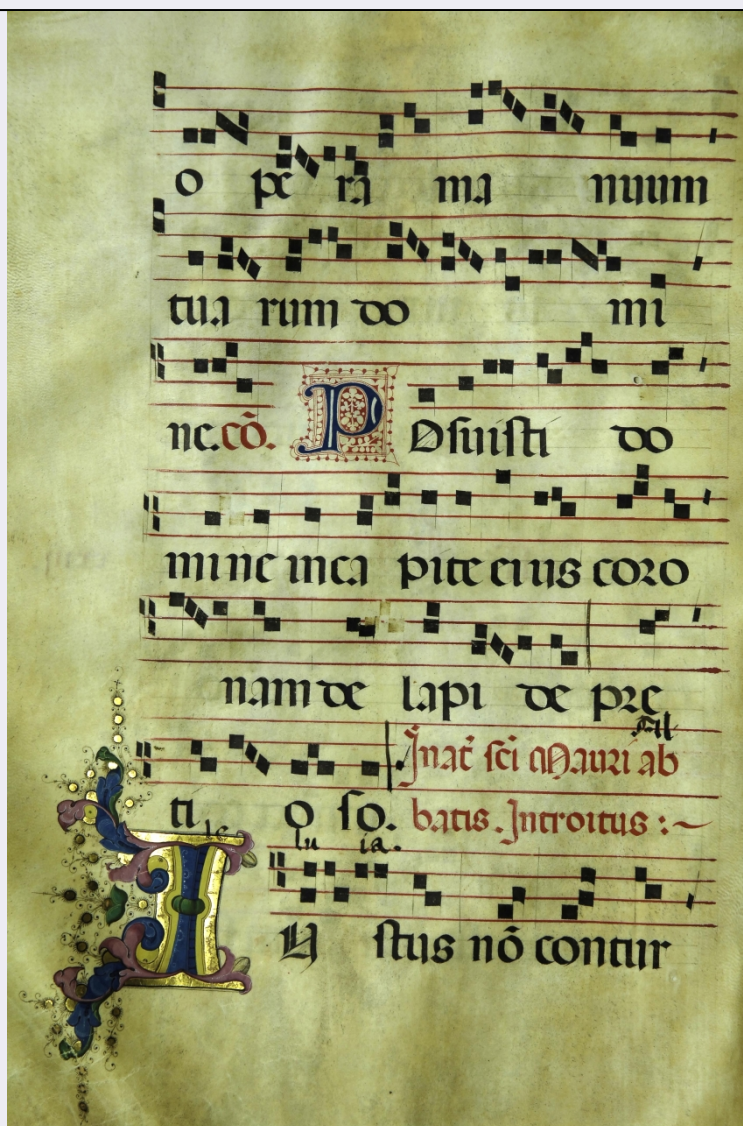 o pe ra ma nuum
tua rum do mi
ne. cō. POsuisti do
mine in ca pite eius coro
nam de lapi de pre
all
Jn nat̄ sc̄i Mauri ab
ti o so. batis. Introitus :~
le lu ia.
IU stus nō contur